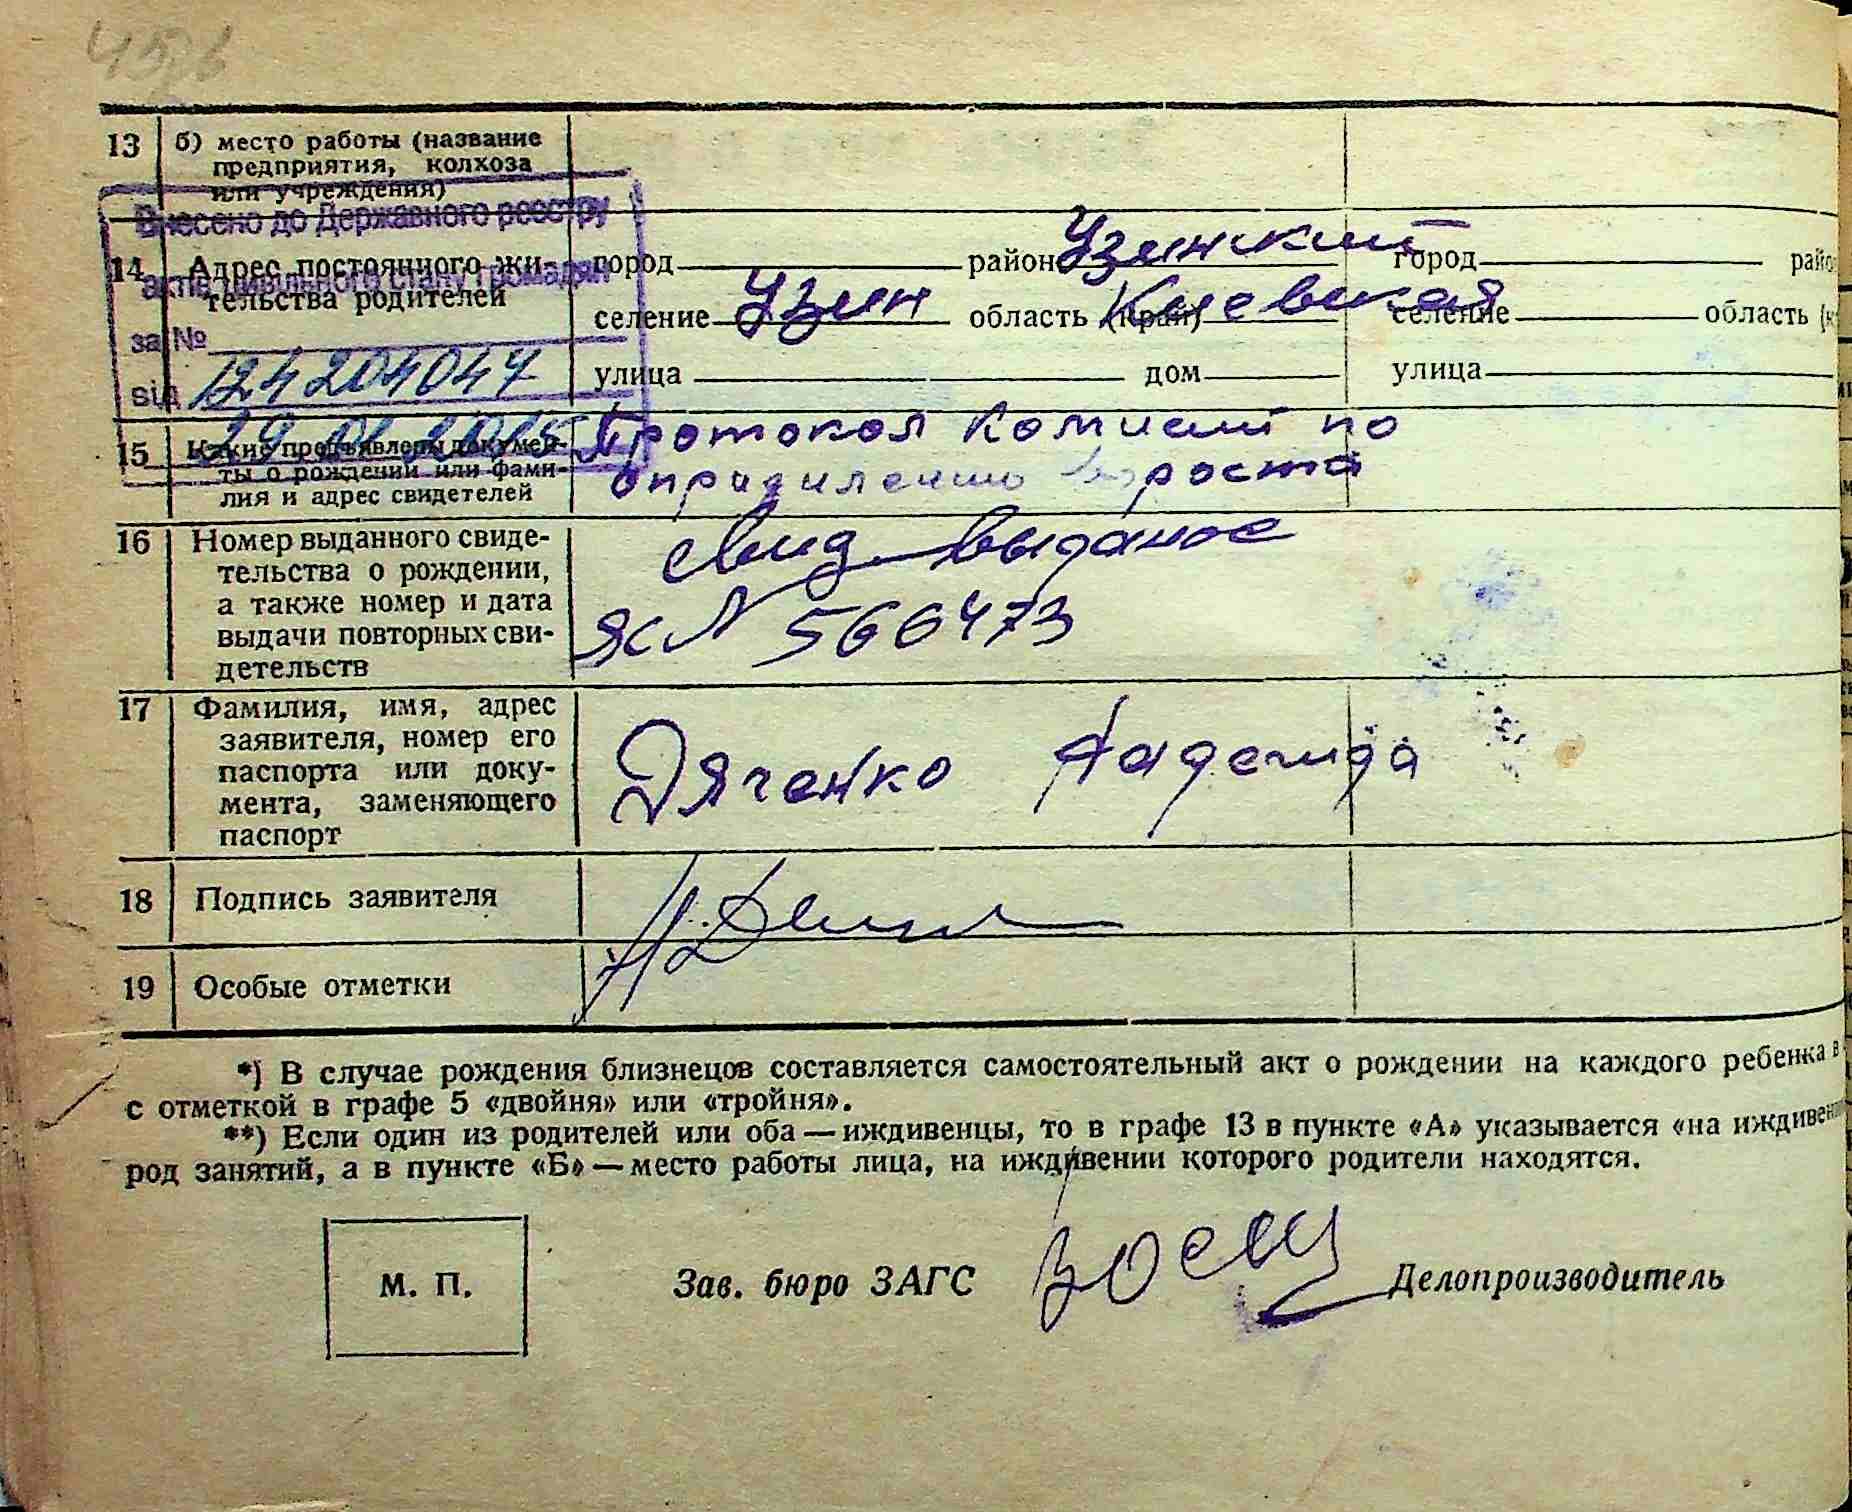 13 б) место работы (название
предприятия, колхоза
или учреждения)
Внесено до Державного реєстру
актів цивільного стану громадян
за №
124204047
від
14 Адрес постоянного жи-
тельства родителей
город район Узинский город
селение Узин область (край) Киевская селение область
улица дом улица
15 Какие предъявлены докумен-
ты о рождении или фами-
лия и адрес свидетелей
Протокол комисии по
16 Номер выданного свиде-
тельства о рождении,
а также номер и дата
выдачи повторных сви-
детельств
свид выданое
N 566473
17 Фамилия, имя, адрес
заявителя, номер его
паспорта или доку-
мента, заменяющего
паспорт
Дяченко Надежда
18 Подпись заявителя
19 Особые отметки
*) В случае рождения близнецов составляется самостоятельный акт о рождении на каждого ребенка в
с отметкой в графе 5 «двойня» или «тройня».
**) Если один из родителей или оба — иждивенцы, то в графе 13 в пункте «А» указывается «на
род занятий, а в пункте «Б» — место работы лица, на иждивении которого родители находятся.
М. П. Зав. бюро ЗАГС Делопроизводитель